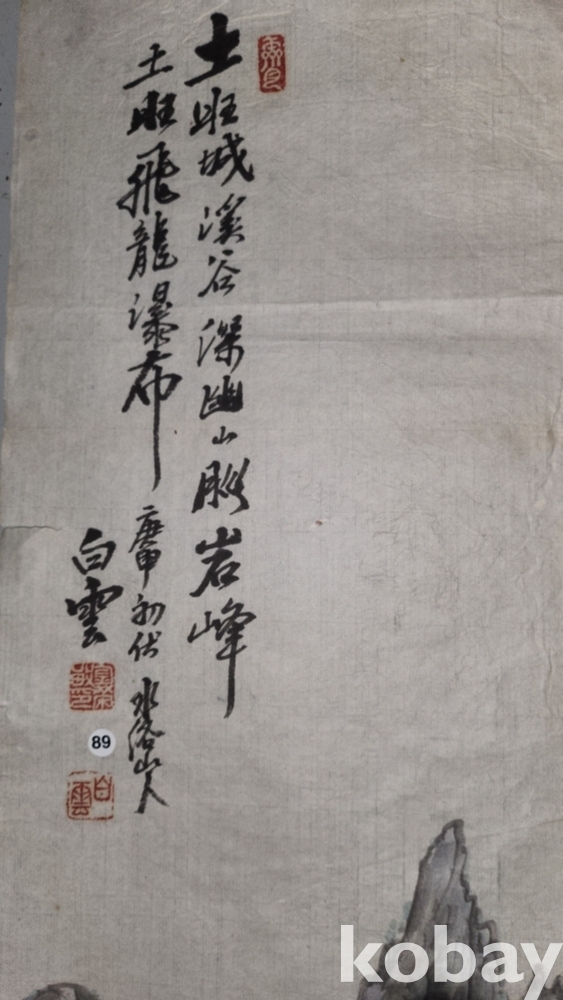 土旺城溪谷深幽山脈岩峰
土旺飛龍瀑布
庚申初伏 水落山人
白雲
89
白雲
kobay